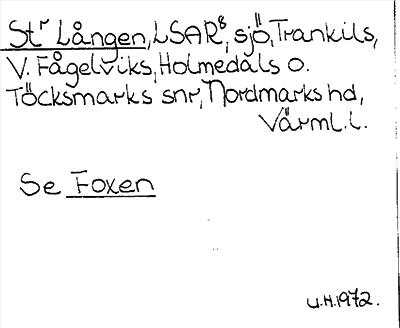 Stʳ Lången, LSARˢ, sjö, Trankils,
V. Fågelviks, Holmedals o.
Töcksmarks snr, Nordmarks hd,
Värml. l.
Se Foxen
U.H. 1972.